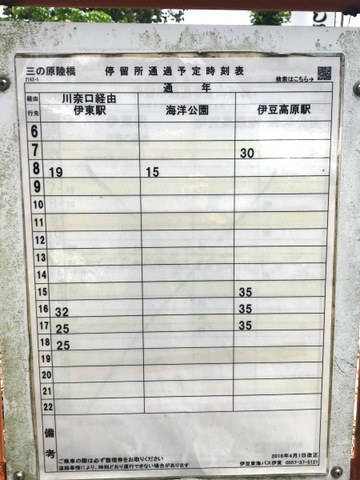 三の原陸橋
2143-1
停留所通過予定時刻表
検索はこちら→
通 年
経由
行先
川奈口経由
伊東駅
海洋公園
伊豆高原駅
6
7 30
8 19 15
9
10
11
12
13
14
15 35
16 32 35
17 25 35
18 25
19
20
21
22
備考
ご乗車の際は必ず整理券をお取りください
道路事情により、時刻どおり運行できない場合があります
2016年4月1日改正
伊豆東海バス伊東 0557-37-5121